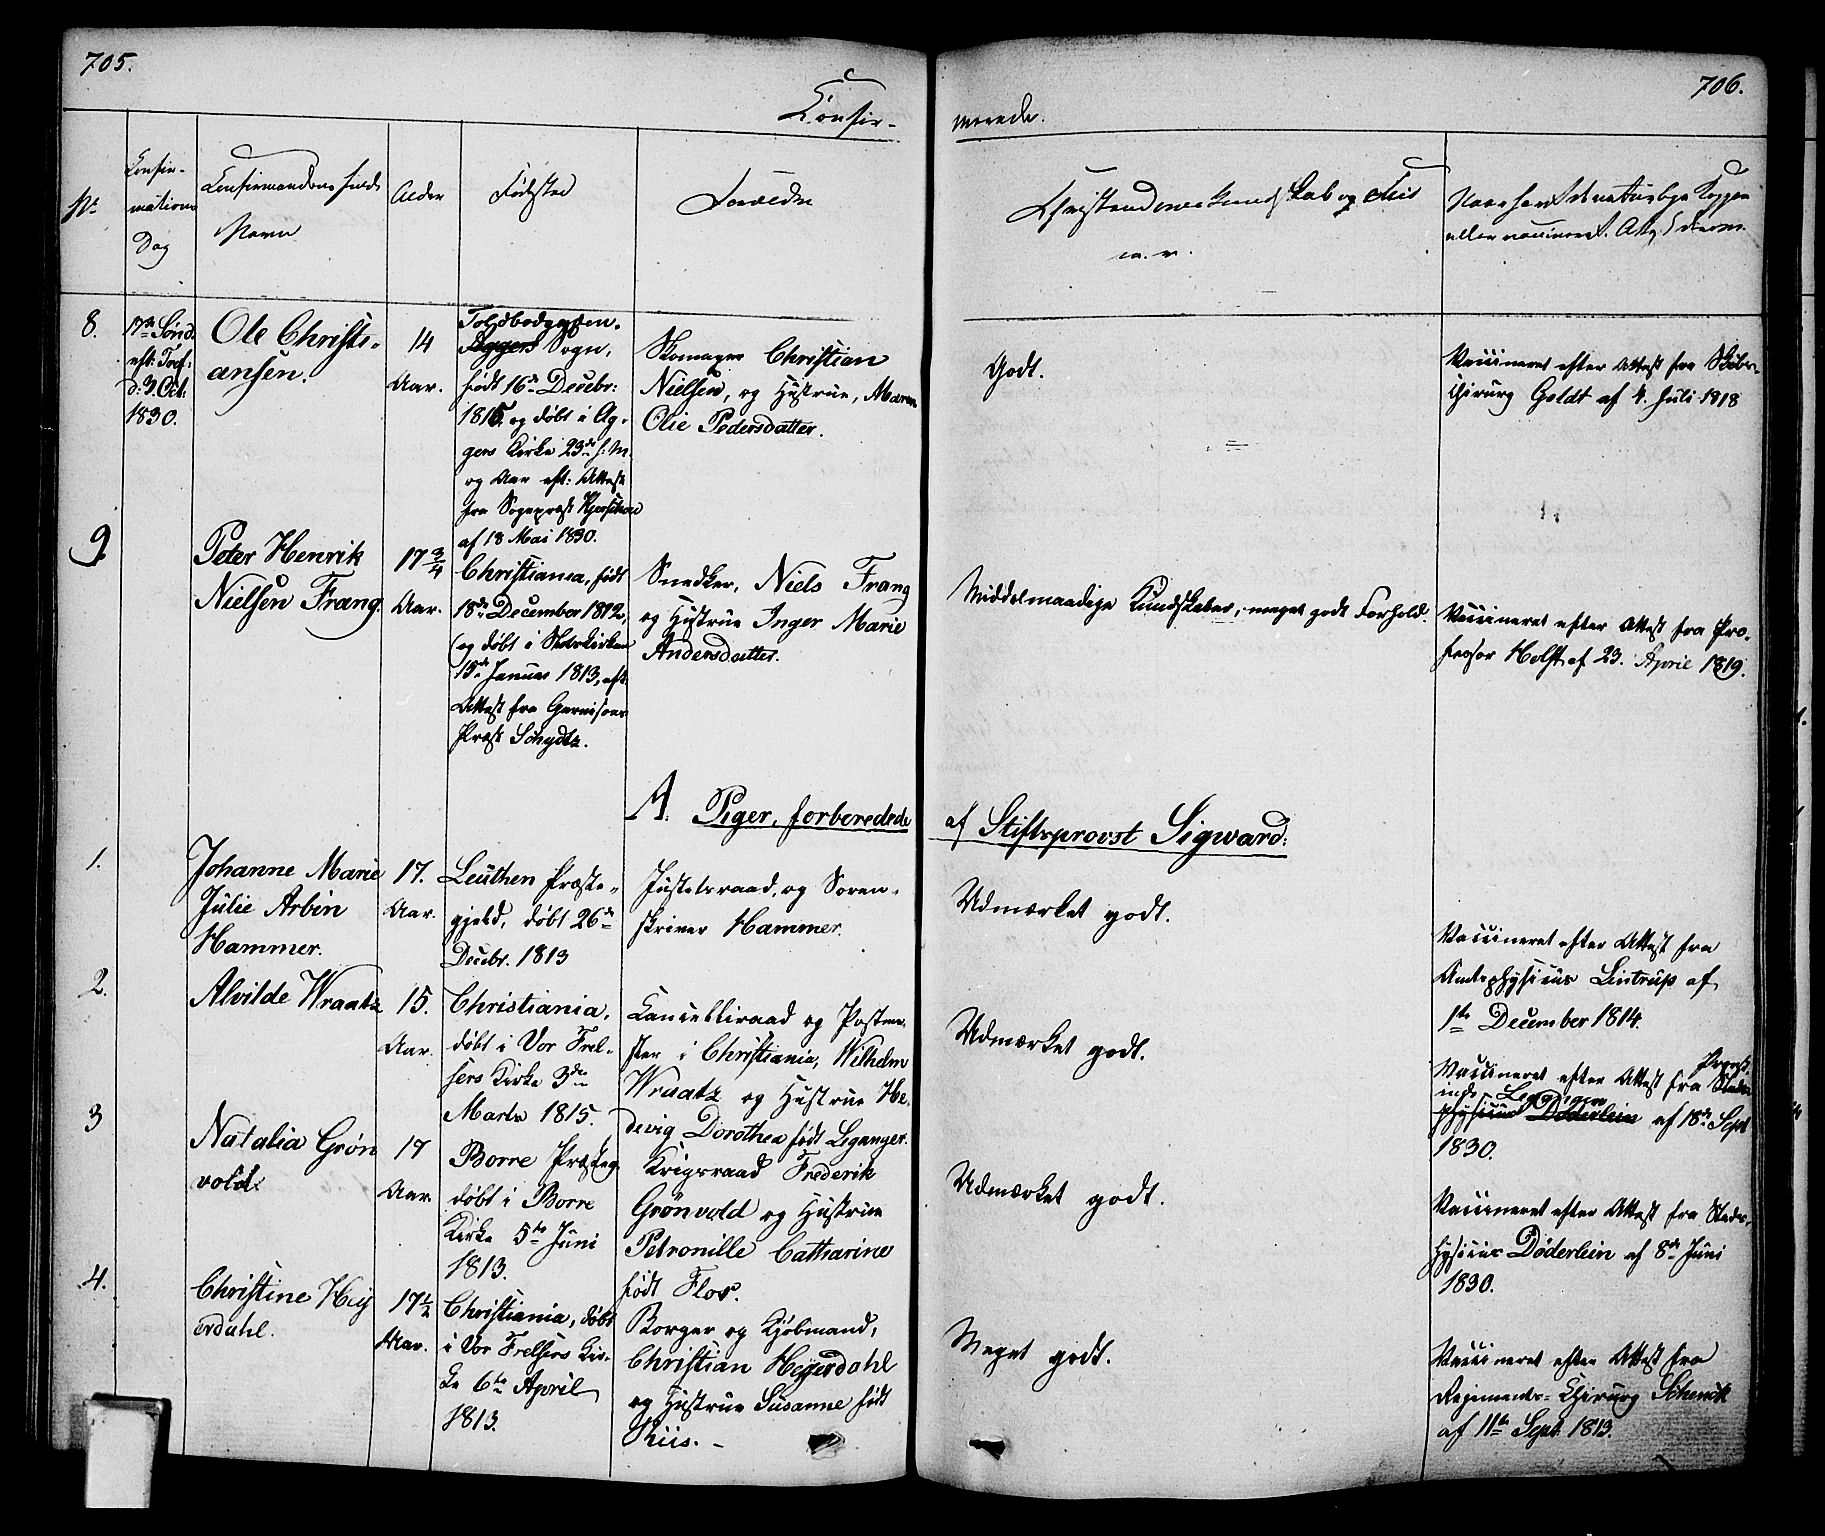 705.
706.
Confir-
merede.
No
Confir-
mations
Dag
Confirmandens fulde
Navn
Alder
Fødested
Forældre
Christendomskundskab og Flid
m. v.
Naar havt de naturlige Kopper
eller vaccineret.
8.
17de Sønd.
eft. Tref:
d: 3 Oct:
1830.
Ole Christi-
ansen.
14
Aar.
Toldbodgaden.
Aggers Sogn,
født 16de Decebr:
1815 og døbt i Ag-
gers Kirke 23de s: M.
og Aar eft: Attest
fra Sognepræst
af 18 Mai 1830.
Skomager Christian
Nielsen, og Hustrue, Maren
Olie Pedersdatter.
Godt.
Vaccineret efter Attest fra
Chirurg Goldt af 4. Juli 1818
9
Peter Henrik
Nielsen Frang.
17 3/4
Aar.
Christiania, født
18de December 1812,
og døbt i
15de Januar 1813, eft.
Attest fra Garnisons
Præst Schydtz.
Snedker, Niels Frang
og Hustrue Inger Marie
Andersdatter.
Middelmaadige Kundskaber, meget godt Forhold.
Vaccineret efter Attest fra Pro-
fessor Holst af 23. April 1819.
A. Piger, forberedede
af Stiftsprovst Sigward:
1.
Johanne Marie
Julie Arbin
Hammer.
17.
Aar.
Leuthen Præste-
gjeld, døbt 26de
Decebr. 1813
Justitsraad, og Soren-
skriver Hammer.
Udmærket godt.
Vaccineret efter Attest fra
Amtsphysicus Lintrup af
1ste December 1814.
2.
Alvilde Wraatz
15.
Aar.
Christiania,
døbt i Vor Frel-
sers Kirke 3die
Marts 1815.
Cancelliraad og Postme-
ster i Christiania, Wilhelm
Wraatz og Hustrue He-
devig Dorothea født Leganger.
Udmærket godt.
Vaccineret efter Attest fra Stads
physicus Døderlein af 18de Sept
1830.
3
Natalia Grøn
vold.
17
Aar.
Borre Præsteg.
døbt i Borre
Kirke 5te Juni
1813.
Krigsraad Frederik
Grønvold og Hustrue
Petronille Catharine
født Flor.
Udmærket godt.
Vaccineret efter Attest fra Stads-
hysicus Døderlein af 8de Juni
1830.
4.
Christine Heÿ
erdahl.
17 1/2
Aar.
Christiania, døbt
i Vor Frelsers Kir-
ke 6te April
1813.
Borger og Kjøbmand,
Christian Heyerdahl
og Hustrue Susanne født
Riis. -
Meget godt.
Vaccineret efter Attest fra
Regiments-Chirurg Schenck
af 11te Sept. 1813.